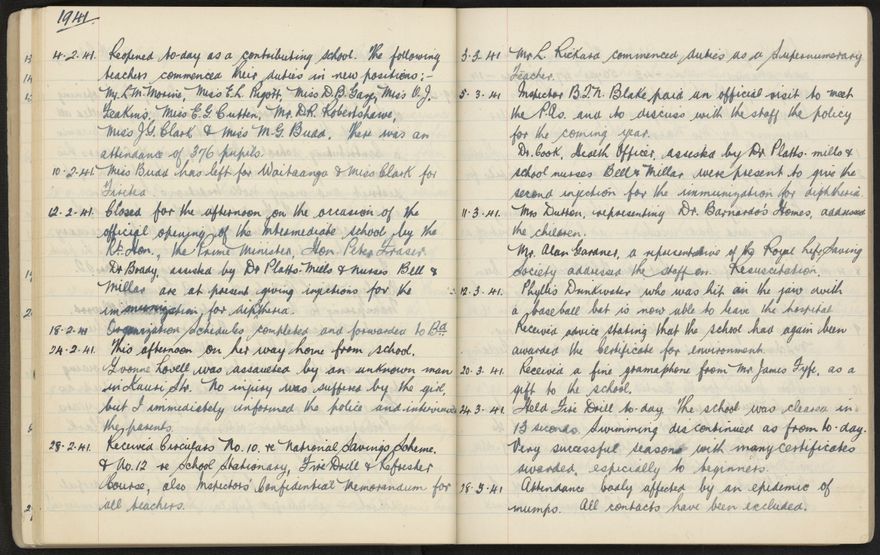 1941.
4.2.41. Reopened to-day as a contributing school. The following
teachers commenced their duties in new positions:-
Miss E.L. Pigott, Miss D.B. Gray, Miss V.J.
Jeakins, Miss E.G. Cutten, Mr. D.R. Robertshawe,
Miss J.G. Clark & Miss M.G. Budd. There was an
attendance of 376 pupils.
10.2.41. Miss Budd has left for Waitaanga & Miss Clark for
12.2.41. Closed for the afternoon on the occasion of the
official opening of the Intermediate school by the
Rt. Hon., the Prime Minister, Hon. Peter Fraser.
Dr Brady, assisted by Dr Platts-Mills & nurses Bell &
Millar are at present giving injections for the
immunization for diptheria.
18.2.41 Organization schedules completed and forwarded to Bd.
24.2.41. This afternoon on her way home from school,
Yvonne Lovell was assaulted by an unknown man
in Kauri Str. No injury was suffered by the girl,
but I immediately informed the police and interviewed
the parents.
28.2.41. Received Circulars No. 10. re National Savings Scheme.
& No. 12 re School Stationary, Fire Drill & Refresher
Course, also Inspectors' Confidential Memorandum for
all teachers.
3.3.41 Mr L. Rickard commenced duties as a Supernumerary
Teacher.
5.3.41 Inspector B.I.N. Blake paid an official visit to meet
the P.As. and to discuss with the staff the policy
for the coming year.
Dr. Cook, Health Officer, assisted by Dr Platts-mills &
school nurses Bell & Millar were present to give the
second injection for the immunization for diptheria.
11.3.41. Mrs Dutton, representing Dr. Barnardo's Homes, addressed
the children.
Mr. Alan Gardner, a representative of the Royal Life Saving
Society addressed the staff on Resuscitation.
12.3.41. Phyllis Drinkwater who was hit on the jaw with
a baseball bat is now able to leave the hospital
Received advice stating that the school had again been
awarded the Certificate for environment.
20.3.41. Received a fine gramophone from Mr James Fyfe, as a
gift to the school.
24.3.41. Held Fire Drill to-day. The school was cleared in
13 seconds. Swimming discontinued as from to-day.
Very sucessful season with many certificates
awarded, especially to beginners.
28.3.41 Attendance badly affected by an epidemic of
mumps. All contacts have been excluded.